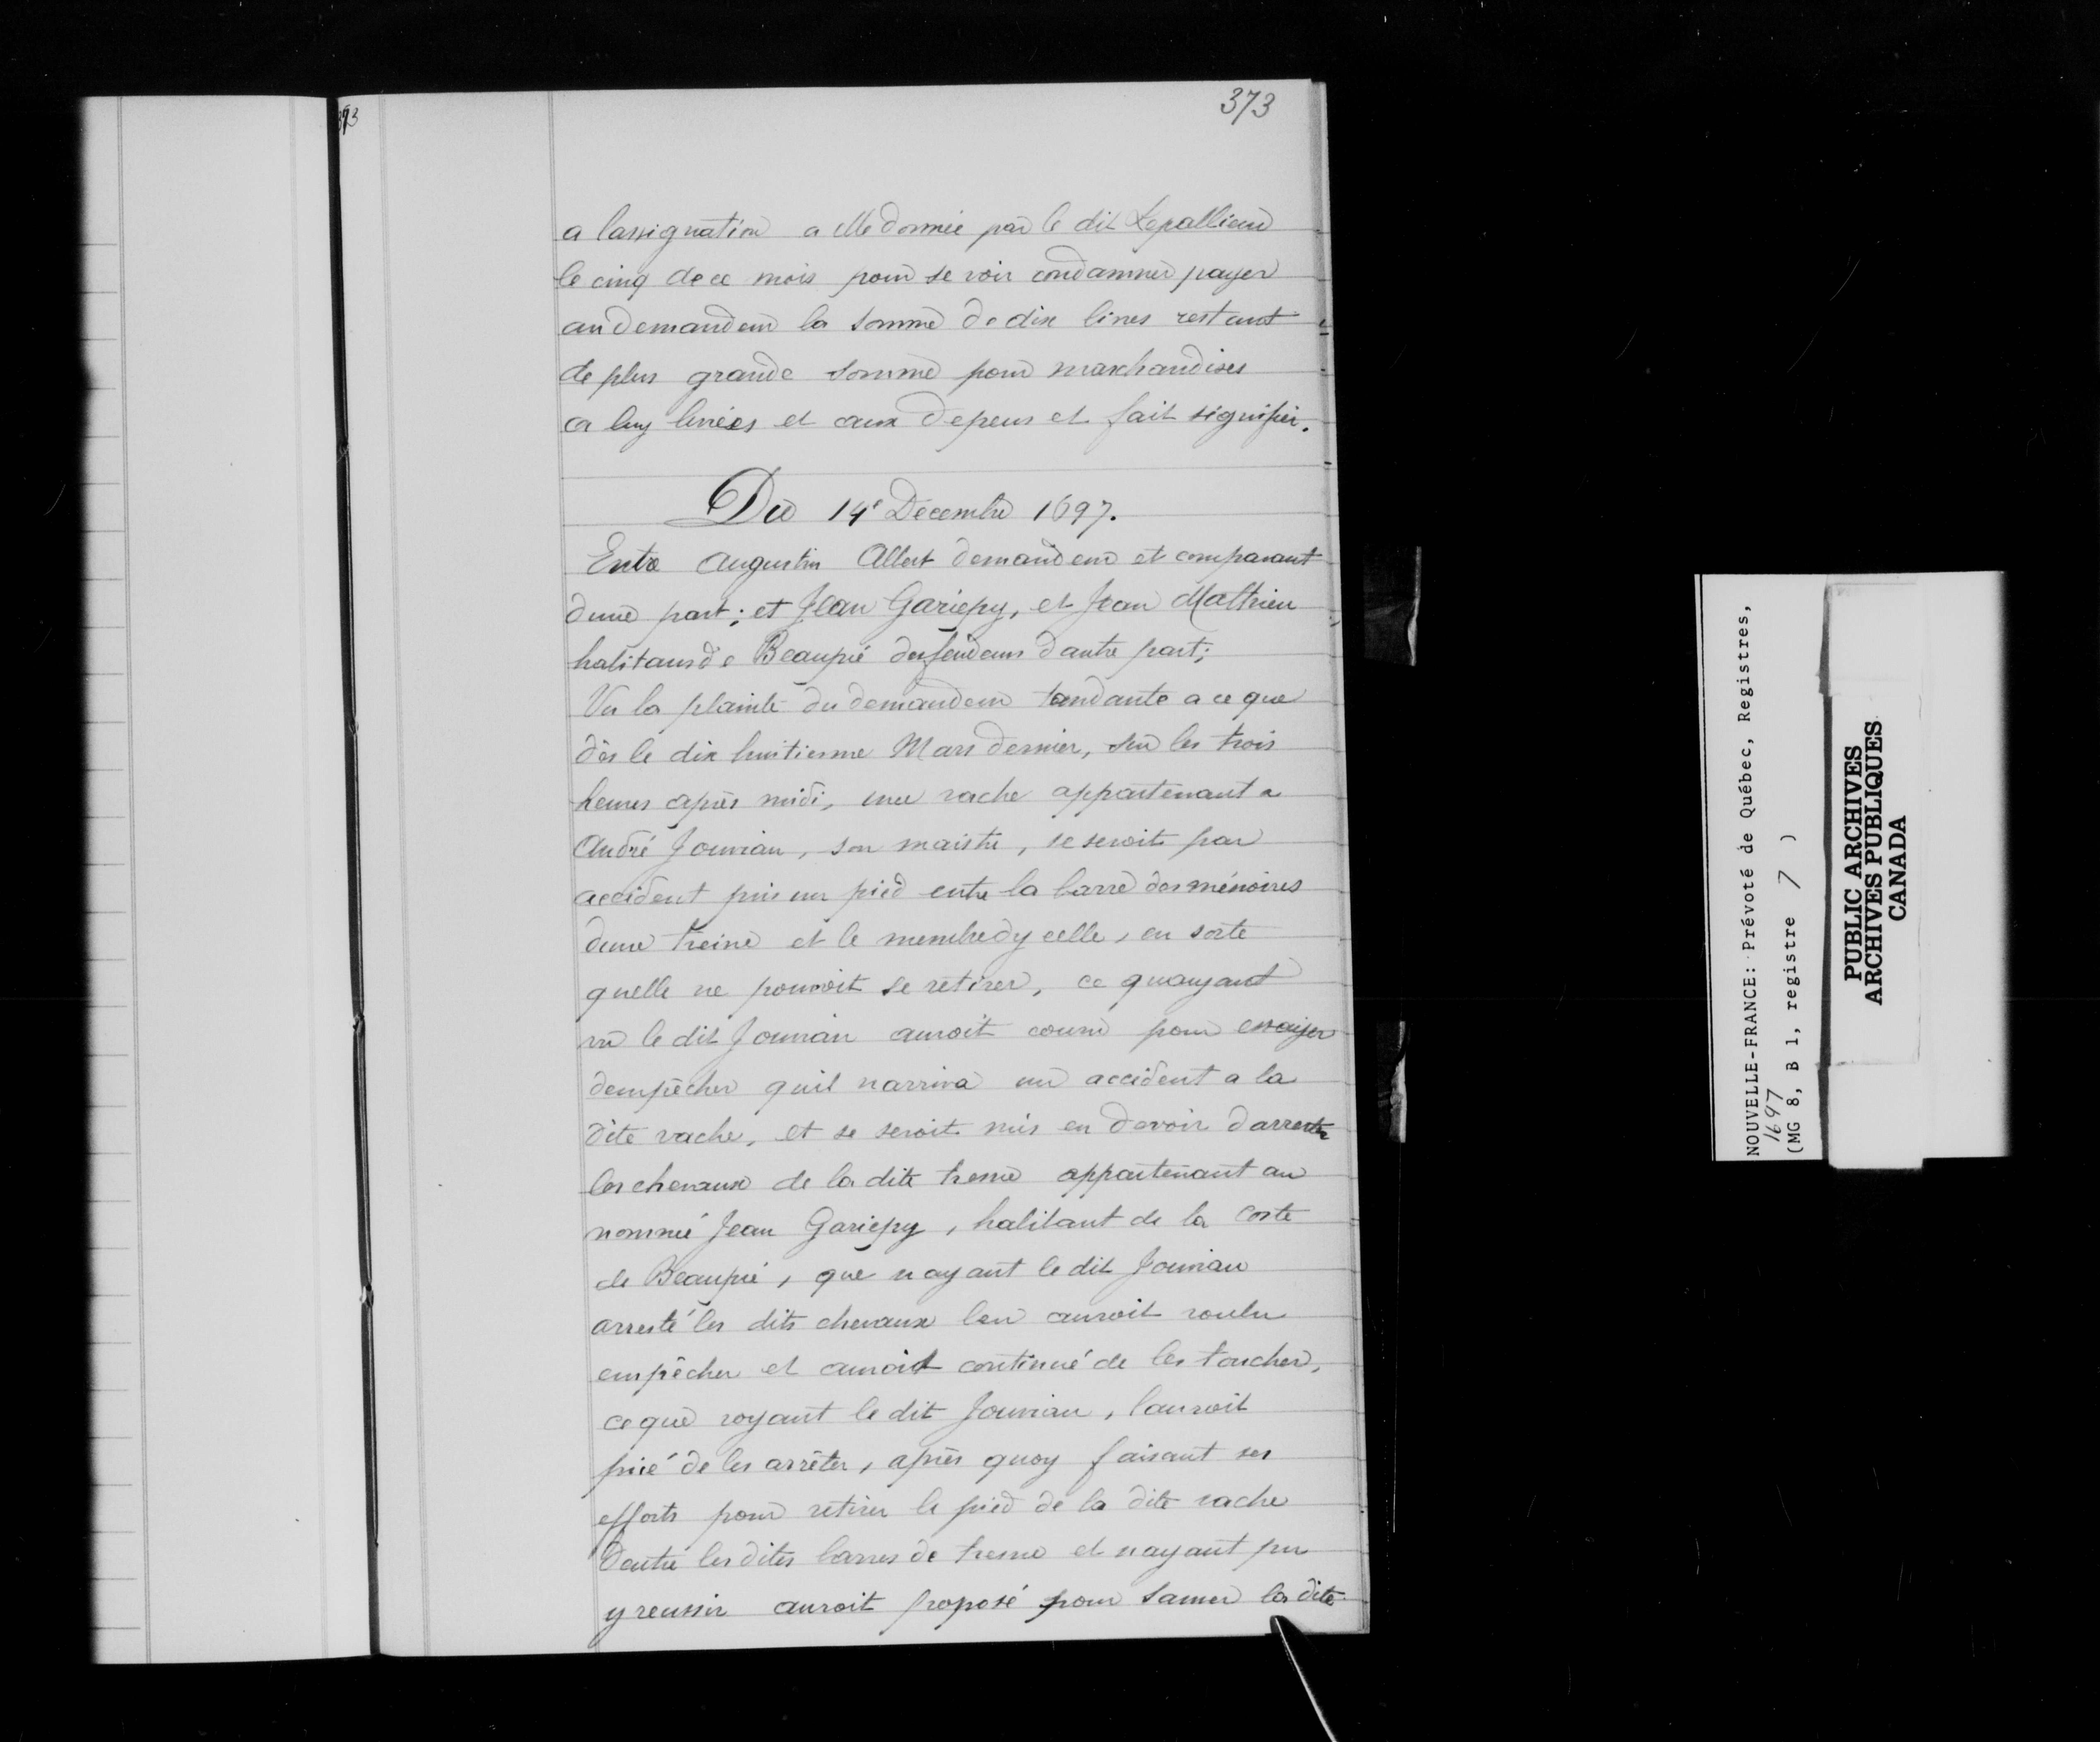 373
393
a lassignation a Elle donnée par le dit Lepallieur
le cinq de ce mois pour se voir condamner payer
au demandeur la somme de dix livres restant
de plus grande somme pour marchandises
a luy livrées et aux depens et fait signifier.
Du 14e Decembre 1697.
Entre Augustin Albert demandeur et comparant
dune part; et Jean Gariepy, et Jean Mathieu
habitans de Beaupré deffendeurs dautre part;
Vu la plainte du demandeur tandante a ce que
dès le dix huitiesme Mars dernier, sur les trois
heures après midi, une vache appartenant a
André Jouvian, son maistre, se seroit par
accident pris un pied entre la barre des ménoires
dune treine et le membre dycelle, en sorte
quelle ne pouvoit se retirer, ce quayant
vu le dit Jouvian auroit couru pour essayer
dempêcher quil narriva un accident a la
dite vache, et se seroit mis en devoir darrester
les chevaux de la dite tresne appartenant au
nommé Jean Gariepy, habitant de la Coste
de Beaupré, que nayant le dit Jouvian
arresté les dits chevaux len auroit voulu
empêcher et auroit continué de les toucher,
ce que voyant le dit Jouvian, lauroit
prié de les arrêter, après quoy faisant ses
efforts pour retirer le pied de la dite vache
Dentre les dites barres de tresne et nayant pu
y reussir auroit proposé pour sauver la dite
NOUVELLE-FRANCE: Prévoté de Québec, Registres,
1697
(MG 8, B 1, registre 7 )
PUBLIC ARCHIVES
ARCHIVES PUBLIQUES
CANADA